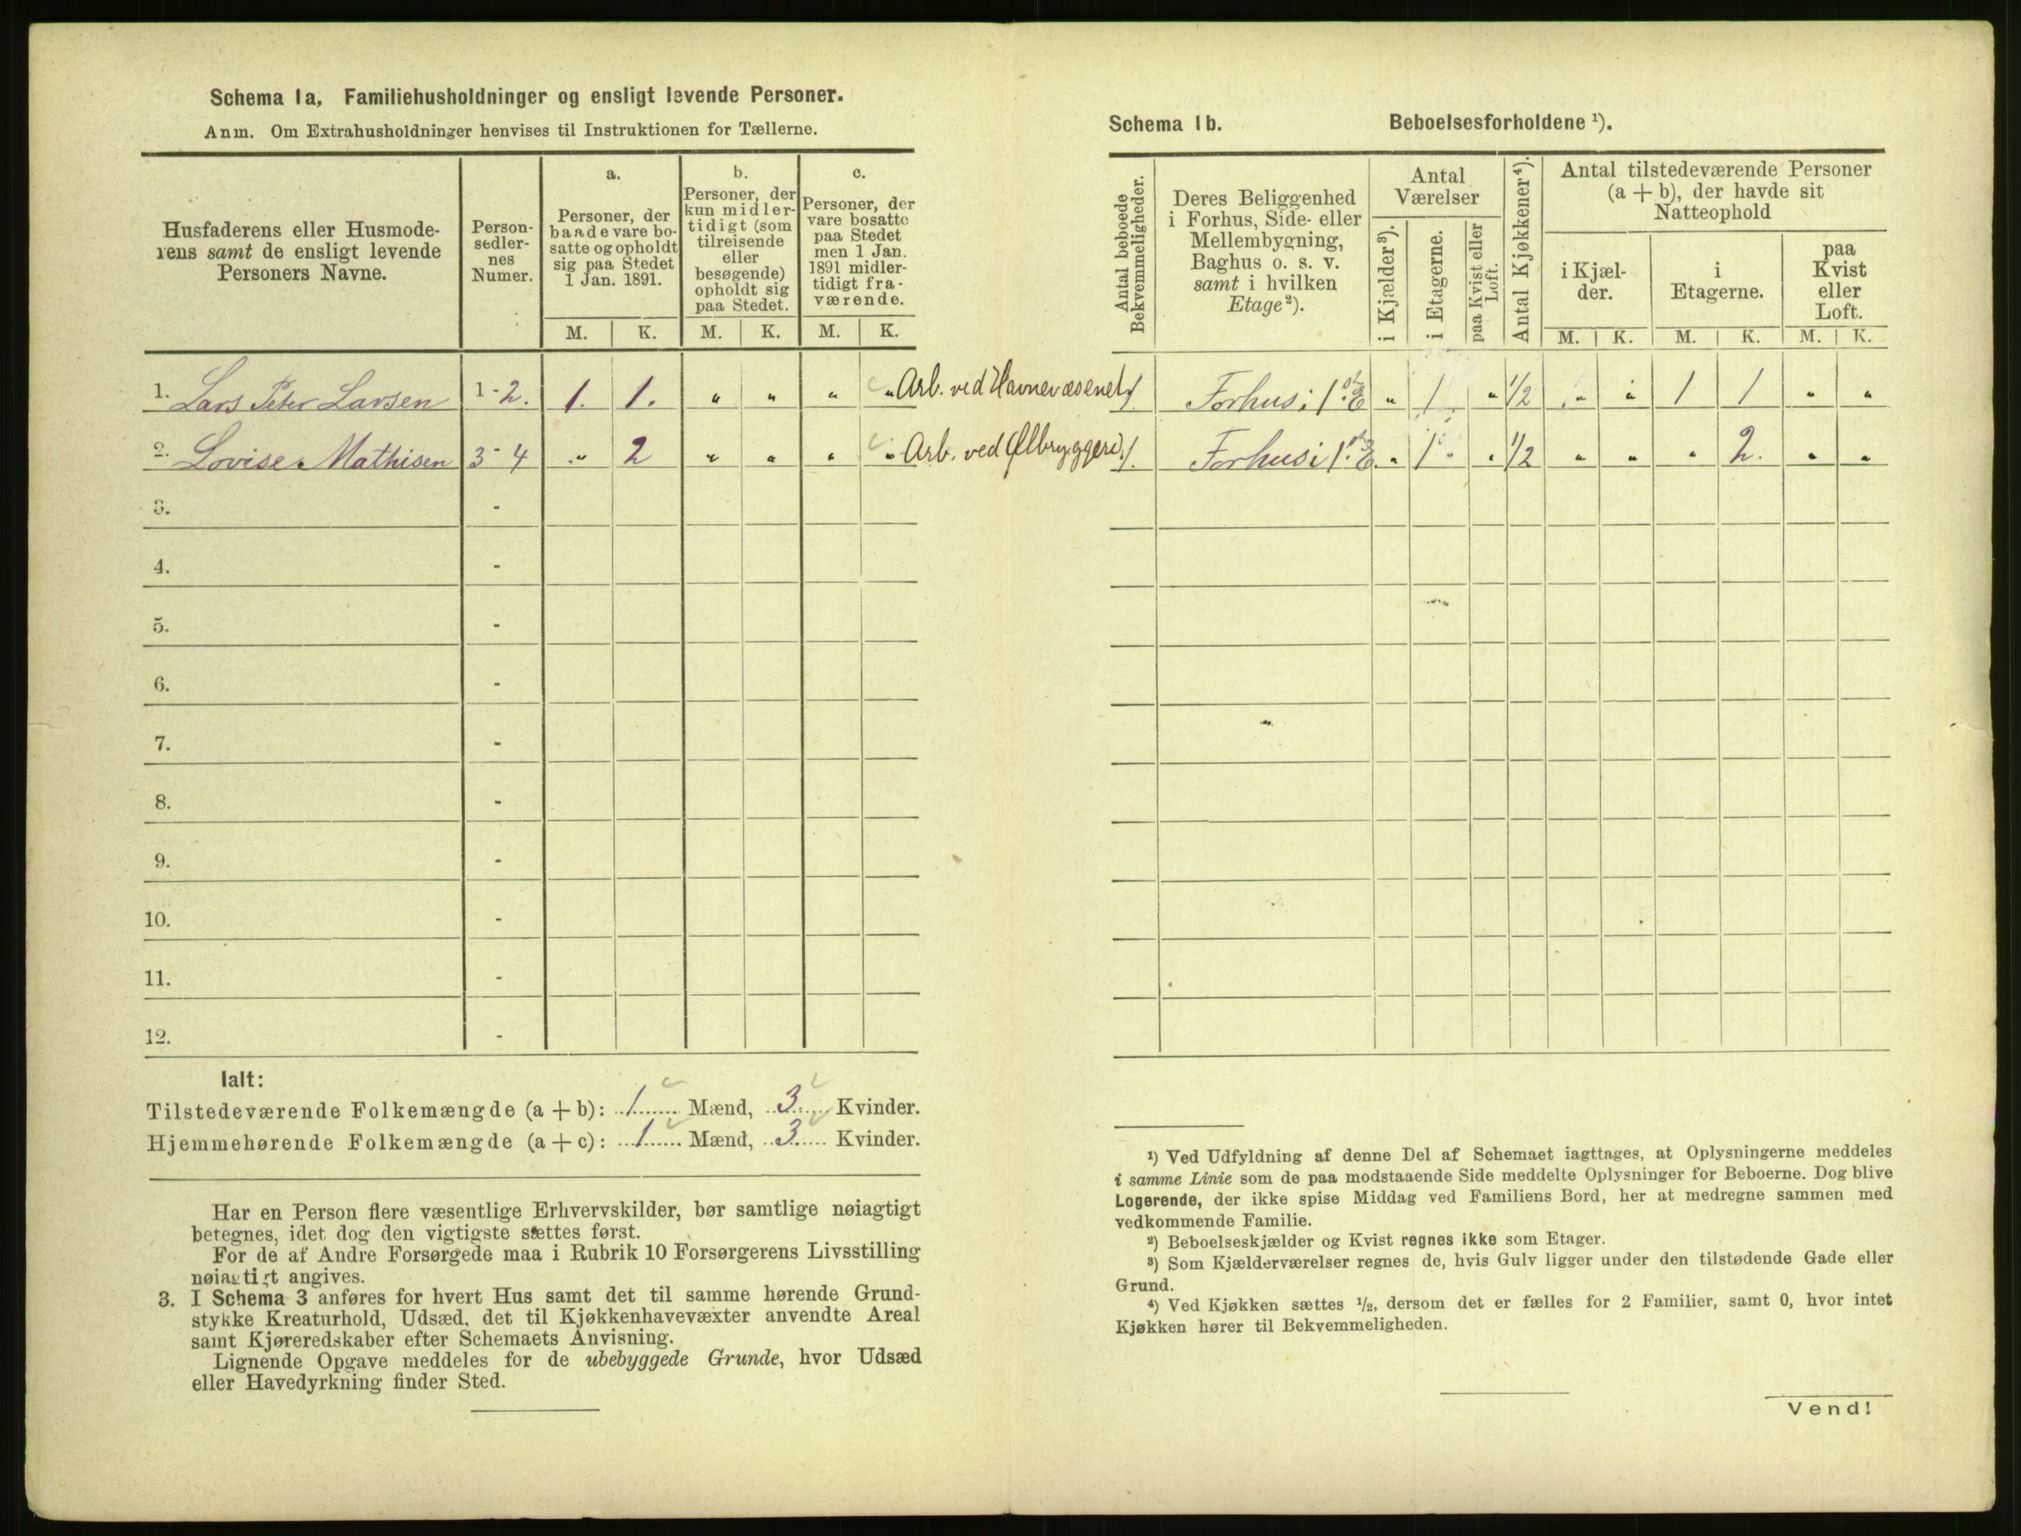 Schema 1a. Familiehusholdninger og ensligt levende Personer.
Anm. Om Extrahusholdninger henvises til Instruktionen for Tællerne.
Husfaderens eller Husmode-
rens samt de ensligt levende
Personers Navne.
Person-
sedler-
nes
Numer.
a.
Personer, der
baade vare bo-
satte og opholdt
sig paa Stedet
1 Jan. 1891.
b.
Personer, der
kun midler-
tidigt (som
tilreisende
eller
besøgende)
opholdt sig
paa Stedet.
c.
Personer, der
vare bosatte
paa Stedet
men 1 Jan.
1891 midler-
tidigt fra-
værende.
M. K. M. K. M. K.
1. Lars Peter Larsen 1 - 2. 1. 1. " " " " Arb. ved Havnevæsenet
2. Lovise Mathisen 3 - 4 " 2 " " " " Arb. ved Ølbryggeri
3. -
4. -
5. -
6. -
7. -
8. -
9. -
10. -
11. -
12. -
Ialt:
Tilstedeværende Folkemængde (a + b): 1 Mænd, 3 Kvinder.
Hjemmehørende Folkemængde (a + c): 1 Mænd, 3 Kvinder.
Har en Person flere væsentlige Erhvervskilder, bør samtlige nøiagtigt
betegnes, idet dog den vigtigste sættes først.
For de af Andre Forsørgede maa i Rubrik 10 Forsørgerens Livsstilling
nøiagtigt angives.
3. I Schema 3 anføres for hvert Hus samt det til samme hørende Grund-
stykke Kreaturhold, Udsæd, det til Kjøkkenhavevæxter anvendte Areal
samt Kjøreredskaber efter Schemaets Anvisning.
Lignende Opgave meddeles for de ubebyggede Grunde, hvor Udsæd
eller Havedyrkning finder Sted.
Schema 1b. Beboelsesforholdene ¹).
Antal beboede
Bekvemmeligheder.
Deres Beliggenhed
i Forhus, Side- eller
Mellembygning,
Baghus o. s. v.
samt i hvilken
Etage²).
Antal
Værelser
i Kjælder³).
i Etagerne.
paa Kvist eller
Loft.
Antal Kjøkkener⁴).
Antal tilstedeværende Personer
(a + b), der havde sit
Natteophold
i Kjæl-
der.
i
Etagerne.
paa
Kvist
eller
Loft.
M. K. M. K. M. K.
1 Forhus i 1ste E " 1 " 1/2 " " 1 1 " "
1. Forhus i 1ste E. " 1 " 1/2 " " " 2. " "
¹) Ved Udfyldning af denne Del af Schemaet iagttages, at Oplysningerne meddeles
i samme Linie som de paa modstaaende Side meddelte Oplysninger for Beboerne. Dog blive
Logerende, der ikke spise Middag ved Familiens Bord, her at medregne sammen med
vedkommende Familie.
²) Beboelseskjælder og Kvist regnes ikke som Etager.
³) Som Kjælderværelser regnes de, hvis Gulv ligger under den tilstødende Gade eller
Grund.
⁴) Ved Kjøkken sættes ½, dersom det er fælles for 2 Familier, samt 0, hvor intet
Kjøkken hører til Bekvemmeligheden.
Vend!